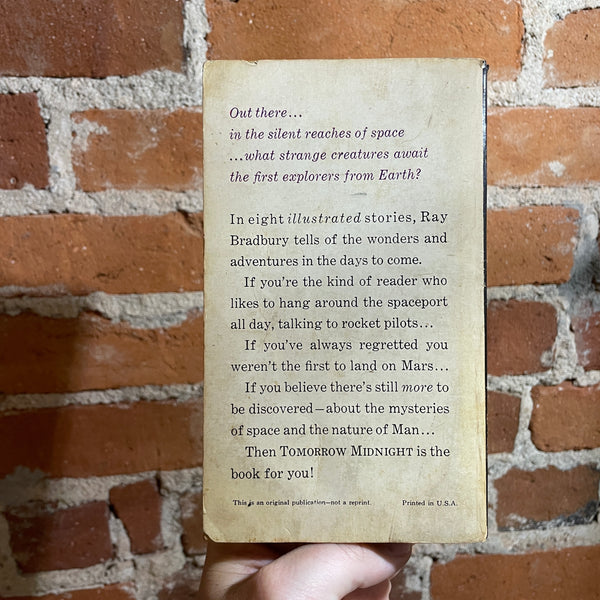 Out there...
in the silent reaches of space
...what strange creatures await
the first explorers from Earth?
In eight illustrated stories, Ray
Bradbury tells of the wonders and
adventures in the days to come.
If you're the kind of reader who
likes to hang around the spaceport
all day, talking to rocket pilots...
If you've always regretted you
weren't the first to land on Mars...
If you believe there's still more to
be discovered—about the mysteries
of space and the nature of Man...
Then TOMORROW MIDNIGHT is the
book for you!
This is an original publication—not a reprint. Printed in U.S.A.